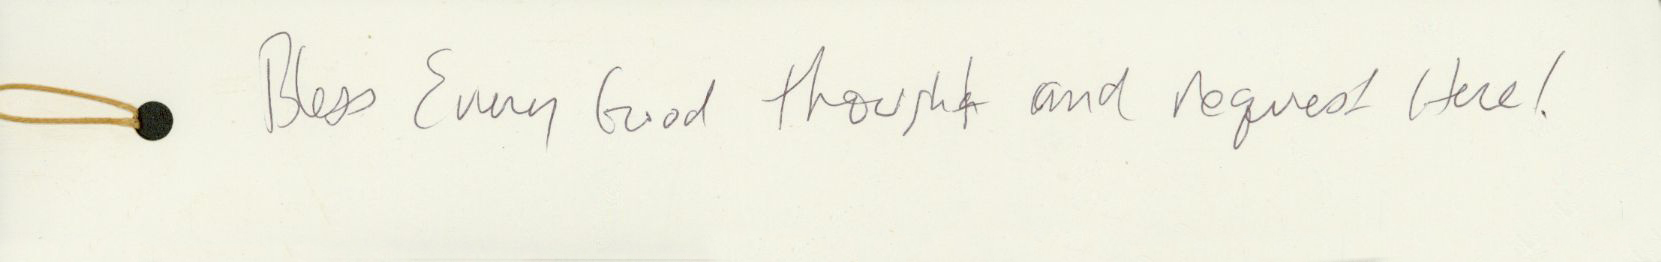 Bless Every Good thought and request Here!